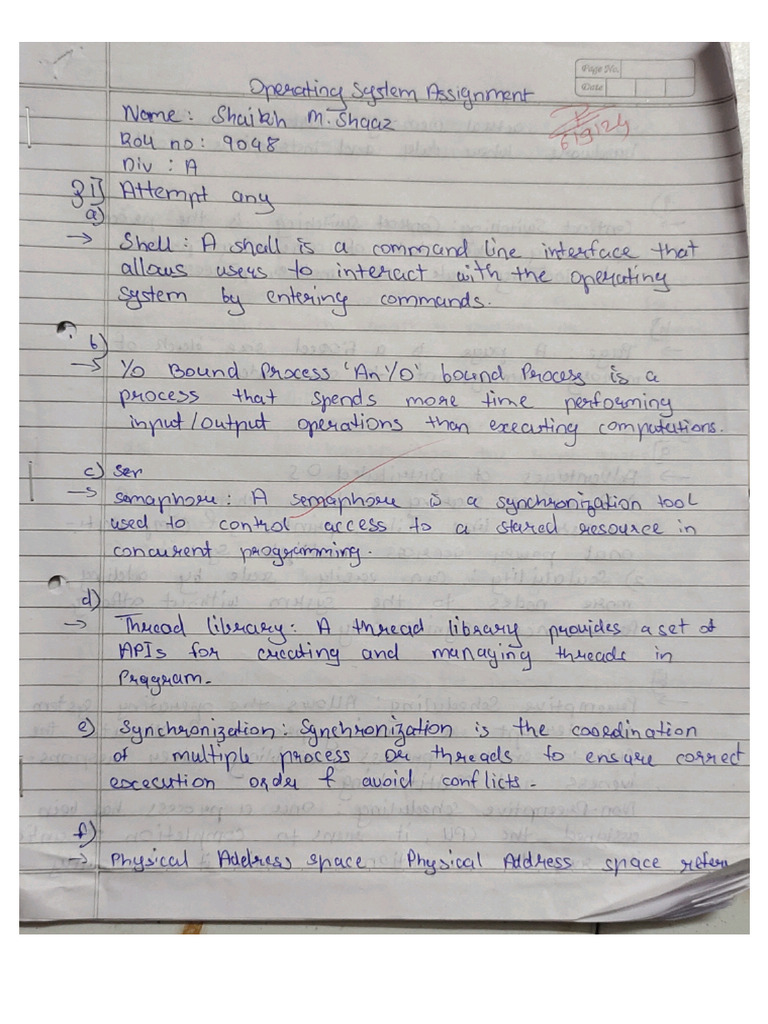 Page No.
Date
Operating System Assignment
Name: Shaikh M. Shaaz
Roll no: 9048
Div : A
6/9/24
Q1] Attempt any
a)
→ Shell: A shall is a command line interface that
allows users to interact with the operating
system by entering commands.
b)
→ I/O Bound Process 'An I/O' bound Process is a
process that spends more time performing
input/output operations than executing computations.
c) Ser
→ semaphore: A semaphore is a synchronization tool
used to control access to a stared resource in
concurent programming.
d)
→ Thread library: A thread library provides a set of
APIs for creating and managing threads in
Program.
e) Synchronization: Synchronization is the coordination
of multiple process or threads to ensure correct
excecution order & avoid conflicts.
f)
→ Physical Address space Physical Address space refers